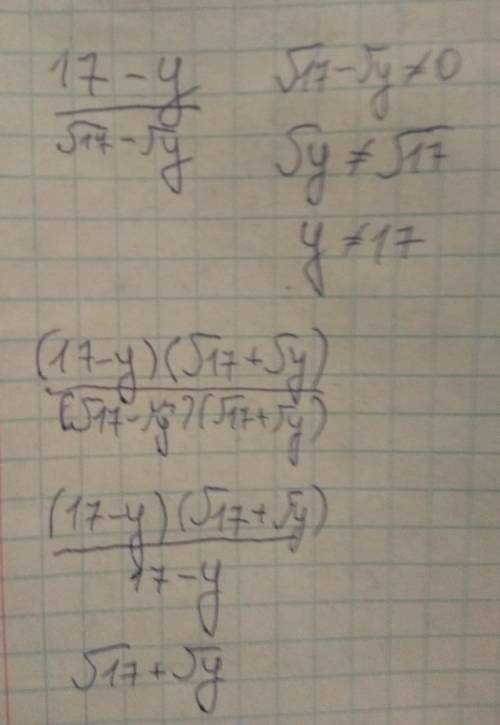 17 - y
√17 - √y
√17 - √y ≠ 0
√y ≠ √17
y ≠ 17
(17 - y)(√17 + √y)
(√17 - √y)(√17 + √y)
(17 - y)(√17 + √y)
17 - y
√17 + √y